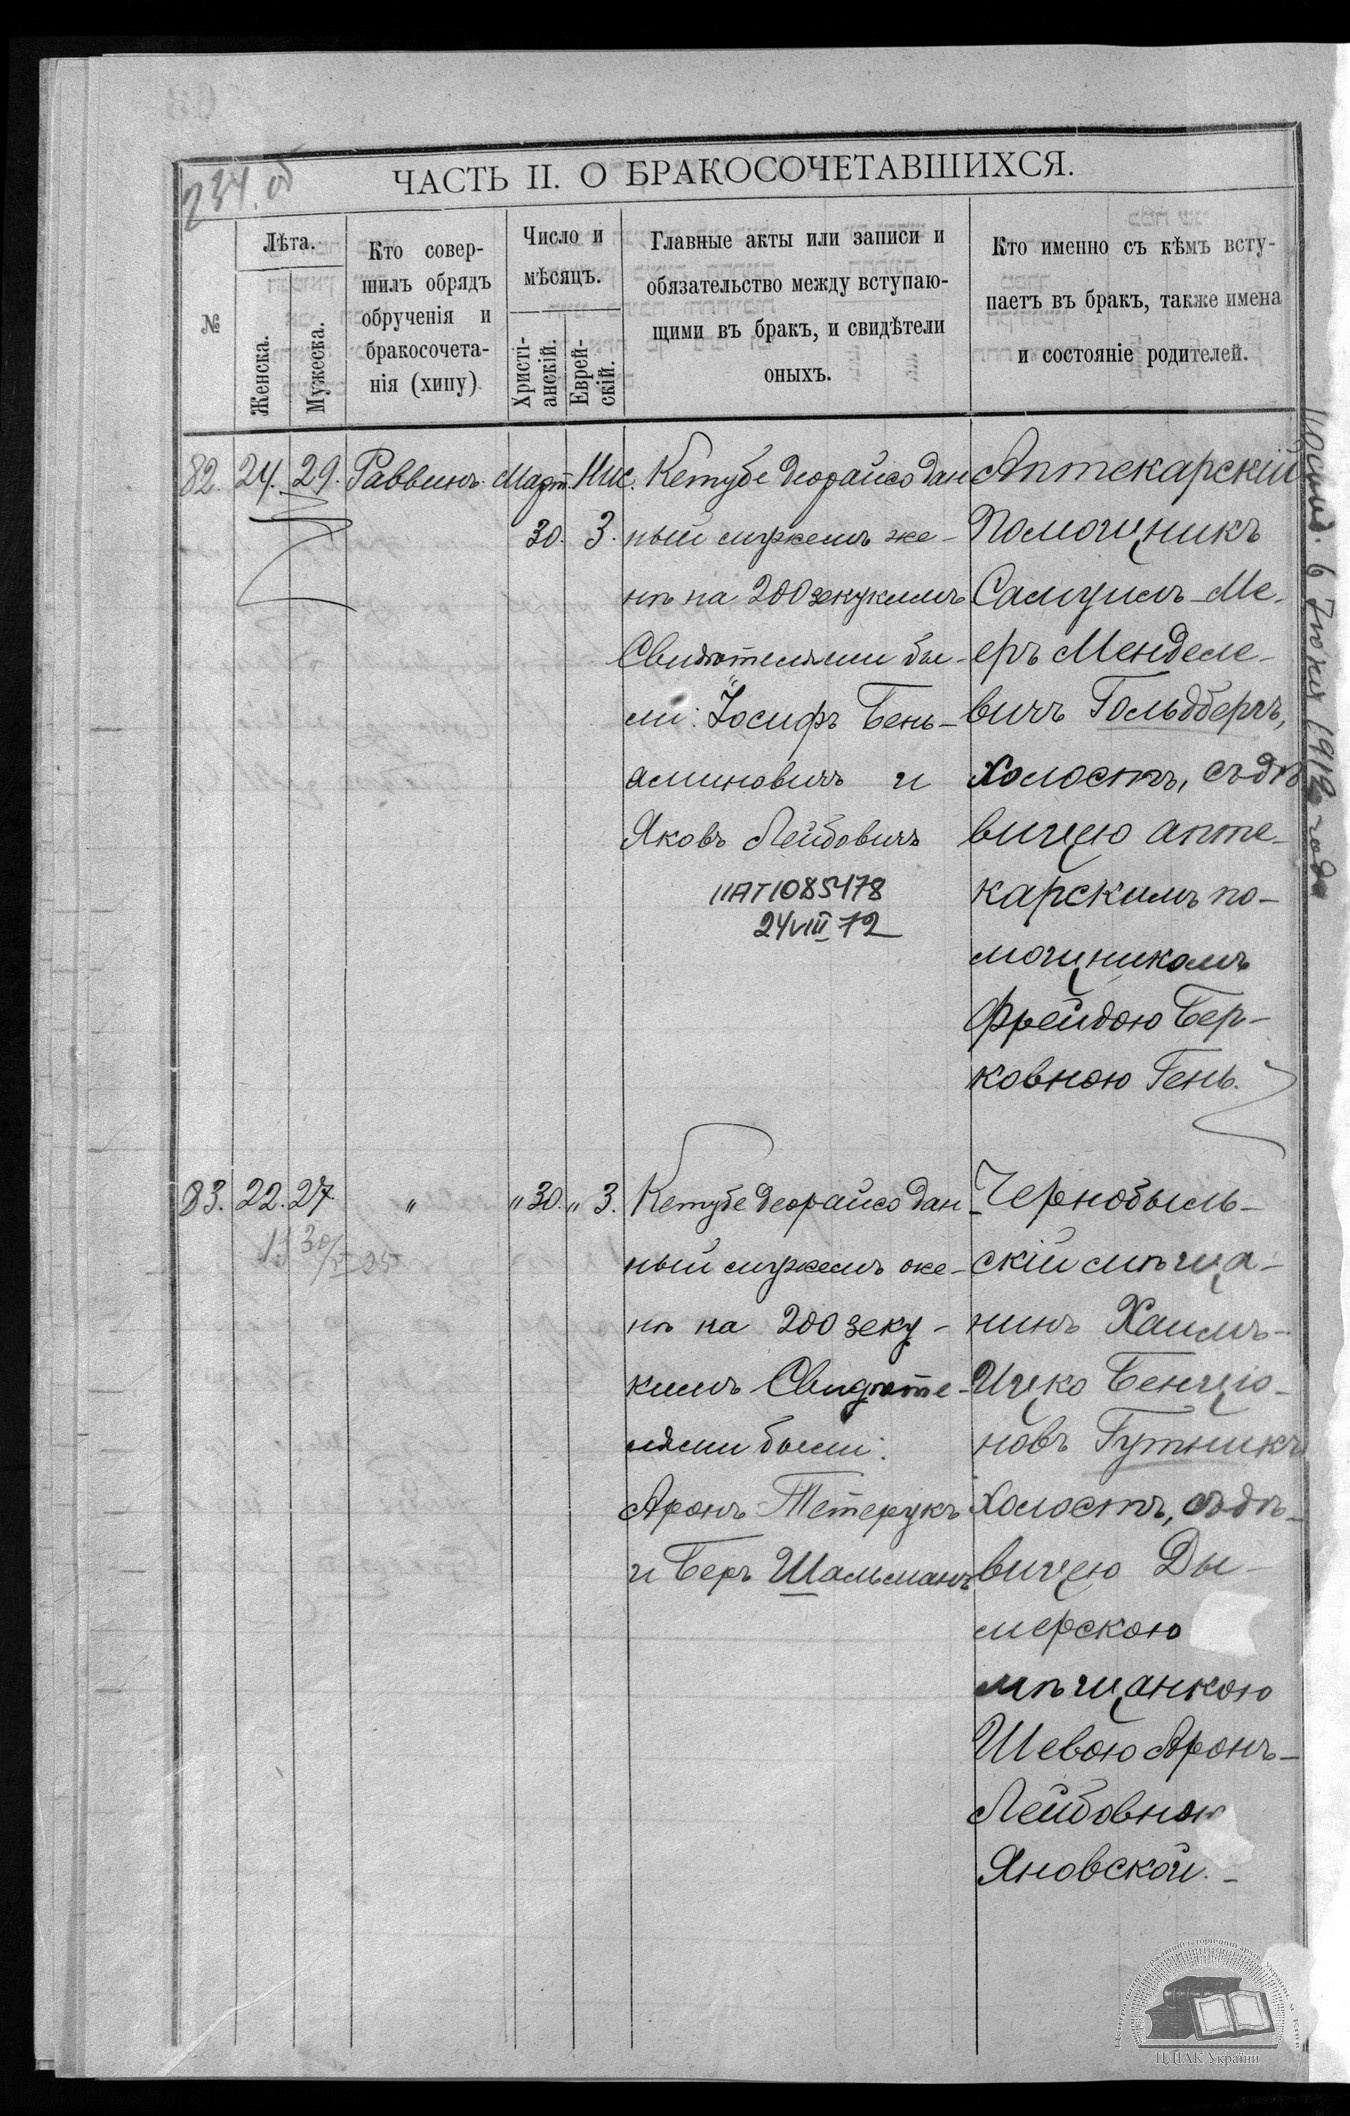 234.об
ЧАСТЬ II. О БРАКОСОЧЕТАВШИХСЯ.
№
Лѣта.
Женска.
Мужеска.
Кто совер-
шилъ обрядъ
обрученія и
бракосочета-
нія (хипу)
Число и
мѣсяцъ.
Христі-
анскій.
Еврей-
скій.
Главные акты или записи и
обязательство между вступаю-
щими въ бракъ, и свидѣтели
оныхъ.
Кто именно съ кѣмъ всту-
паетъ въ бракъ, также имена
и состояніе родителей.
82. 24. 29. Раввинъ. Март. Нис.
30. 3.
Кетубе деорайсо дан
ный мужемъ же-
нѣ на 200 зекукимъ
Свидѣтелями бы-
ли: Іосифъ Бень-
аминовичъ и
Яковъ Лейбовичъ
IIAT1085478
24 VIII 72
Аптекарскій
Помощникъ
Самуилъ-Ме-
еръ Менделе-
вичъ Гольдбергъ,
холостъ, съ дѣ
вицею апте-
карскимъ по-
мощникомъ
Фрейдою Бер-
ковною Гень.
6 Іюня 1912 года
83. 22. 27. " " 30. " 3.
Кетубе деорайсо дан
ный мужемъ же-
нѣ на 200 зеку-
кимъ Свидѣте-
лями были:
Аронъ Тетерукъ
и Беръ Шальманъ
Чернобыль-
скій мѣща-
нинъ Хаимъ-
Ицко Бенціо-
новъ Гутникъ
холостъ, съ дѣ-
вицею Ды-
мерскою
мѣщанкою
Шевою Аронъ-
Лейбовною
Яновской. -
ЦДІАК України